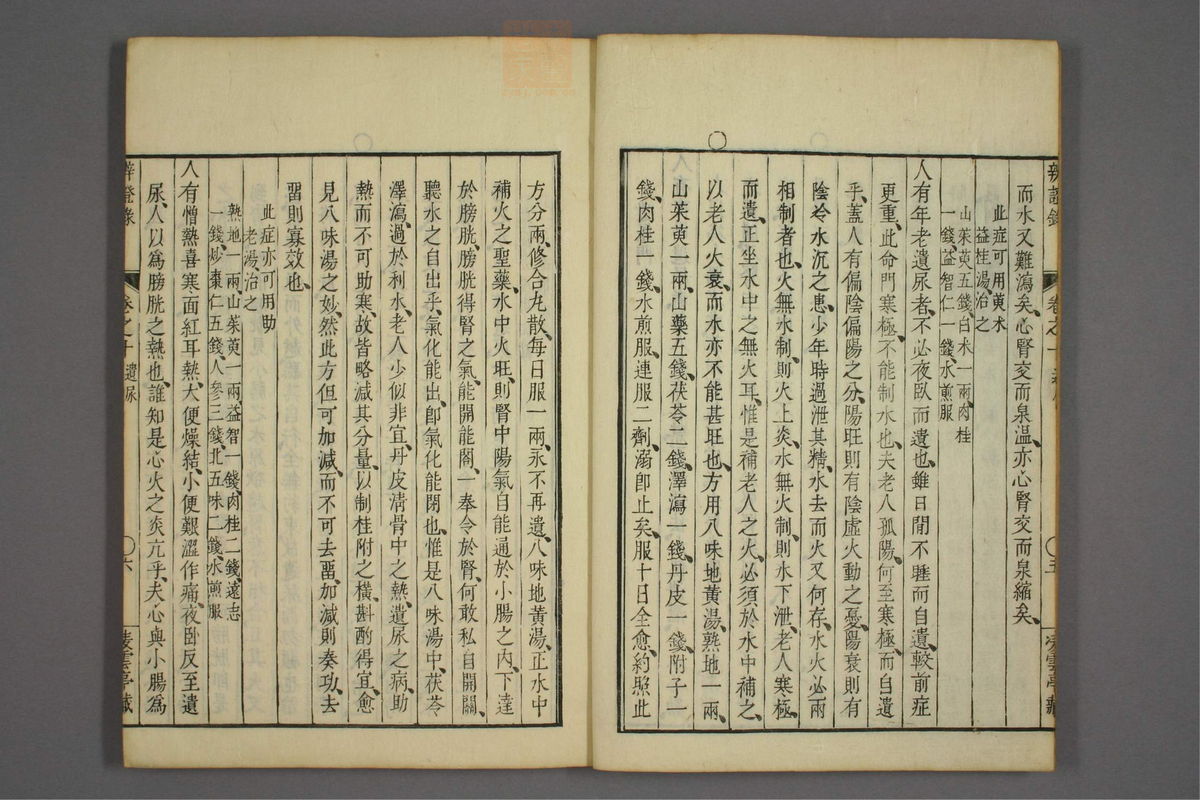 辨證錄
卷之十
五
凌雲亭藏
而水又難瀉矣、心腎交而泉溫、亦心腎交而泉縮矣、
此症可用萸朮
益桂湯、治之
山茱萸五錢、白朮一兩、肉桂
一錢、益智仁一錢、水煎服
人有年老遺尿者、不必夜臥而遺也、雖日間不睡而自遺、較前症
更重、此命門寒極、不能制水也、夫老人孤陽、何至寒極、而自遺
乎、蓋人有偏陰偏陽之分、陽旺則有陰虛火動之憂、陽衰則有
陰冷水沉之患、少年時過泄其精、水去而火又何存、水火必兩
相制者也、火無水制、則火上炎、水無火制、則水下泄、老人寒極、
而遺、正坐水中之無火耳、惟是補老人之火、必須於水中補之、
以老人火衰、而水亦不能甚旺也、方用八味地黃湯、熟地一兩、
山茱萸一兩、山藥五錢、茯苓二錢、澤瀉一錢、丹皮一錢、附子一
錢、肉桂一錢、水煎服、連服二劑、溺即止矣、服十日全愈、約照此
方分兩、修合丸散、每日服一兩、永不再遺、八味地黃湯、正水中
補火之聖藥、水中火旺、則腎中陽氣自能通於小腸之內、下達
於膀胱、膀胱得腎之氣、能開能闔、一奉令於腎、何敢私自開關、
聽水之自出乎、氣化能出、即氣化能閉也、惟是八味湯中、茯苓
澤瀉、過於利水、老人少似非宜、丹皮清骨中之熱、遺尿之病、助
熱而不可助寒、故皆略減其分量、以制桂附之橫、斟酌得宜、愈
見八味湯之妙、然此方但可加減、而不可去留、加減則奏功、去
留則寡效也、
此症亦可用助
老湯、治之
熟地一兩、山茱萸一兩、益智一錢、肉桂二錢、遠志
一錢、炒棗仁五錢、人參三錢、北五味二錢、水煎服
人有憎熱喜寒、面紅耳熱、大便燥結、小便艱澀作痛、夜臥反至遺
尿、人以為膀胱之熱也、誰知是心火之炎亢乎、夫心與小腸為
辨證錄
卷之十 遺尿
六
凌雲亭藏